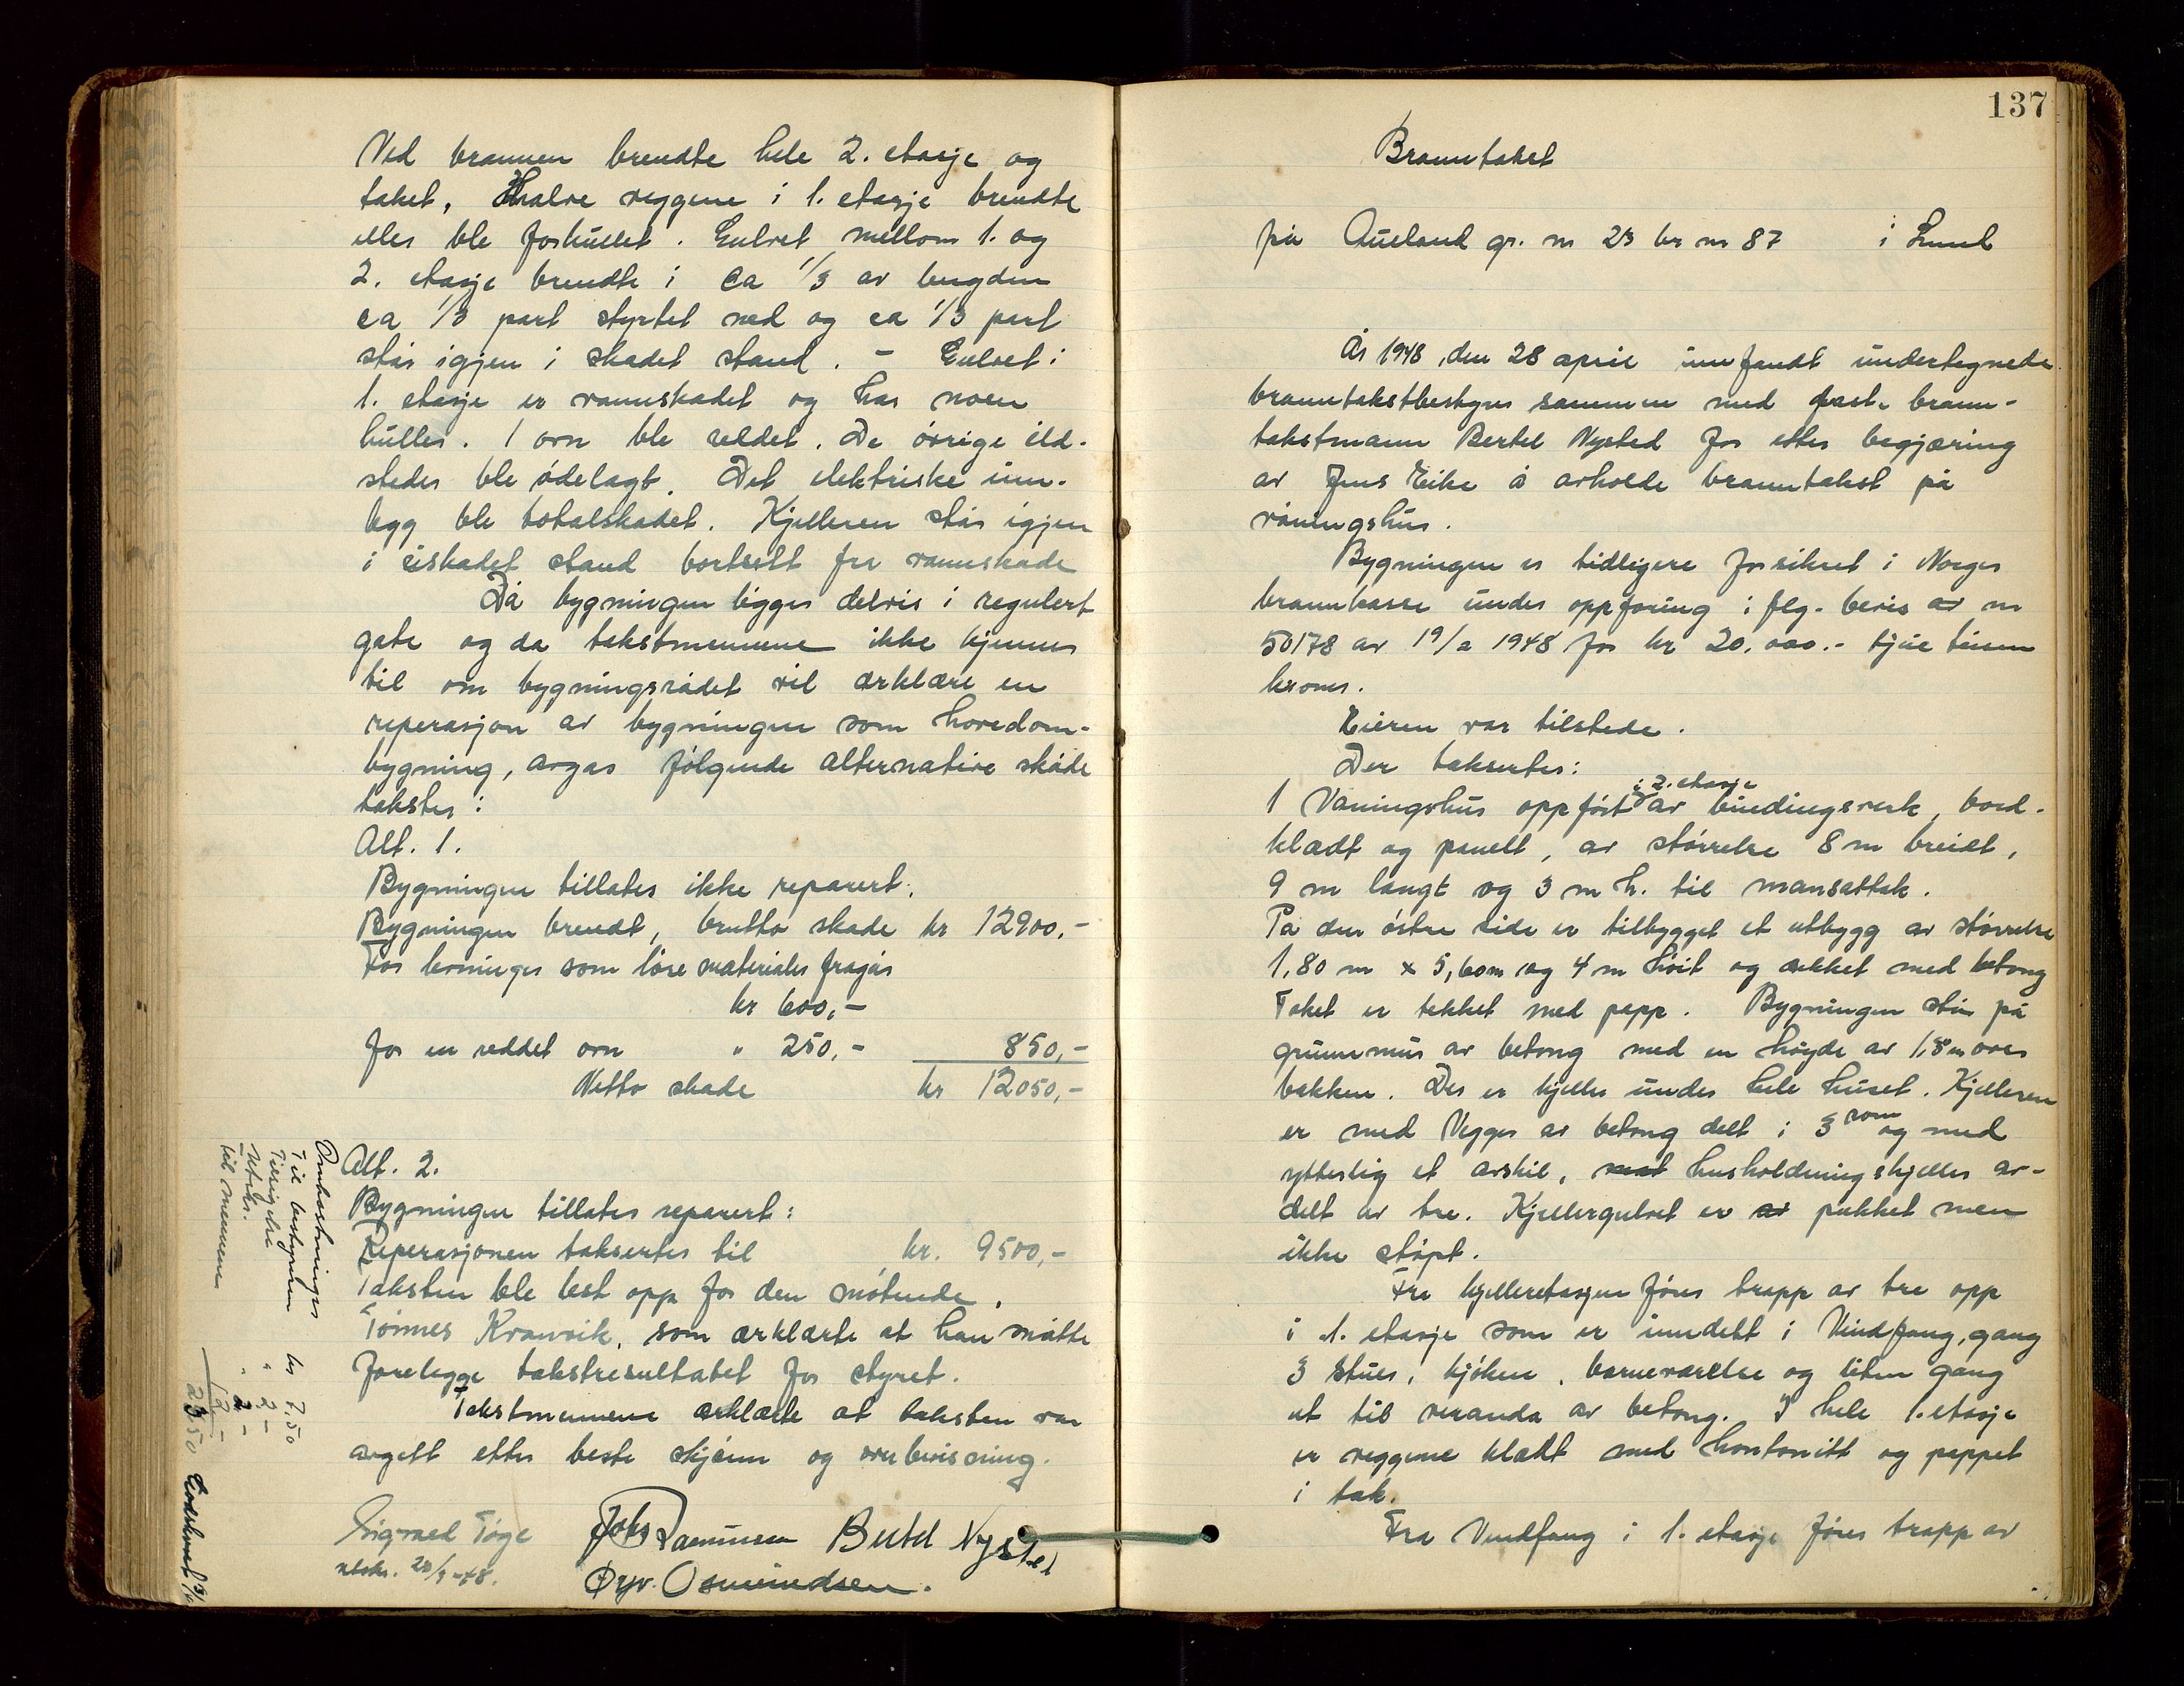 Ved brannen brendte hele 2. etasje og
taket, Halve veggene i 1. etasje brendte
eller ble forkullet. Gulvet mellom 1. og
2. etasje brendte i ca 1/3 av lengden
ca 1/3 part styrtet ned og ca 1/3 part
står igjen i skadet stand. - Gulvet i
1. etasje er vannskadet og har noen
huller. 1 ovn ble reddet. De øvrige ild-
steder ble ødelagt. Det elektriske inn-
legg ble totalskadet. Kjelleren står igjen
i uskadet stand bortsett fra vannskade
Då bygningen ligger delvis i regulert
gate og da takstmennene ikke kjenner
til om bygningsrådet vil erklære en
reperasjon av bygningen som hovedom-
bygning, avgas følgende alternative skade
takster:
Alt. 1.
Bygningen tillates ikke reparert.
Bygningen brendt, brutto skade kr 12900,-
For levninger som løse materialer fragår
kr 600,-
for en reddet ovn " 250,- 850,-
Netto skade kr 12050,-
Alt. 2.
Bygningen tillates reparert:
Reperasjonen taksertes til kr. 9500,-
Taksten ble lest opp for den møtende,
Tønnes Kranvik, som erklærte at han måtte
forelegge takstresultatet for styret.
Takstmennene erklærte at taksten var
avgitt etter beste skjønn og overbevisning.
Sigvald Tøge Johs Rasmussen Bertel Nysted
utskr. 20/3-48. Ørjv. Osmundsen.
Omkostninger
Til bestyreren kr 7,50
Tilsigelse " 2 -
Utskr. " 2 -
til mennene 12 -
23,50 Godskrevet 3/6
137
Branntakst
på Aueland gr. nr 23 br nr 87 i Lund
År 1948, den 28 april innfandt undertegnede
branntakstbestyrer sammen med fast. brann-
takstmann Bertel Nysted for etter begjæring
av Jens Eike å avholde branntakst på
våningshus.
Bygningen er tidligere forsikret i Norges
brannkasse under oppføring i flg. bevis av nr
50178 av 19/2 1948 for kr 20.000.- tjue tusen
kroner.
Eieren var tilstede.
Der taksertes:
1 Våningshus oppført i 2. etasje av bindingsverk, bord-
klædt og panelt, av størrelse 8 m breidt,
9 m langt og 3 m h. til mansattak.
På den østre side er tilbygget et utbygg av størrelse
1,80 m x 5,60 m og 4 m høit og dekket med betong
Taket er tekket med papp. Bygningen står på
grunnmur av betong med en høyde av 1,8 m over
bakken. Der er kjeller under hele huset. Kjelleren
er med Vegger av betong delt i 3 rom og med
ytterlig et avskil, mat husholdningskjeller av-
delt av tre. Kjellergulvet er av pukket men
ikke støpt.
Fra kjelleretasjen føres trapp av tre opp
i 1. etasje som er inndelt i Vindfang, gang
3 stuer, kjøken, barneværelse og liten gang
ut til veranda av betong. I hele 1. etasje
er veggene klædt med hontonitt og pappet
i tak.
Fra Vindfang i 1. etasje føres trapp av